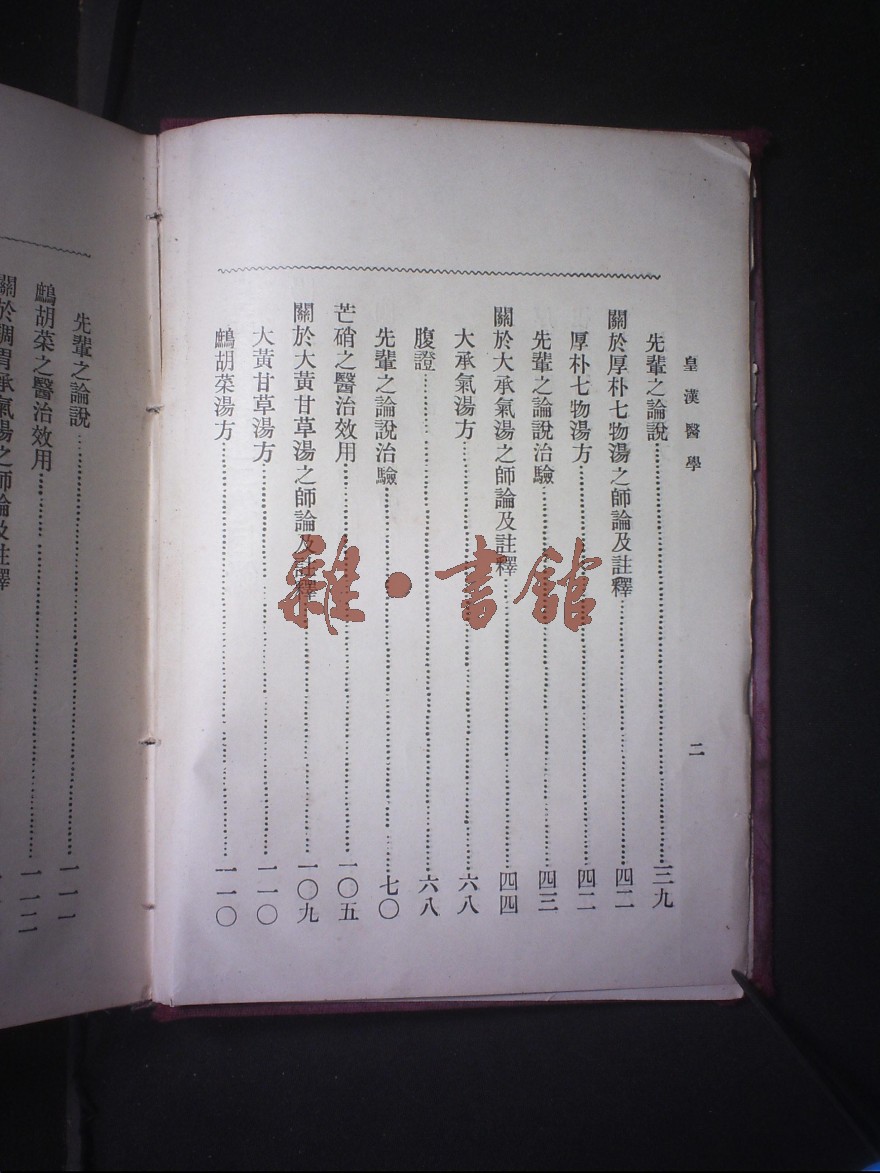 皇漢醫學
二
先輩之論說……三九
關於厚朴七物湯之師論及註釋……四二
厚朴七物湯方……四二
先輩之論說治驗……四三
關於大承氣湯之師論及註釋……四四
大承氣湯方……六八
腹證……六八
先輩之論說治驗……七〇
芒硝之醫治效用……一〇五
關於大黃甘草湯之師論及註釋……一〇九
大黃甘草湯方……一一〇
鷓胡菜湯方……一一〇
先輩之論說……一一一
鷓胡菜之醫治效用……一一二
關於調胃承氣湯之師論及註釋
雜·書館